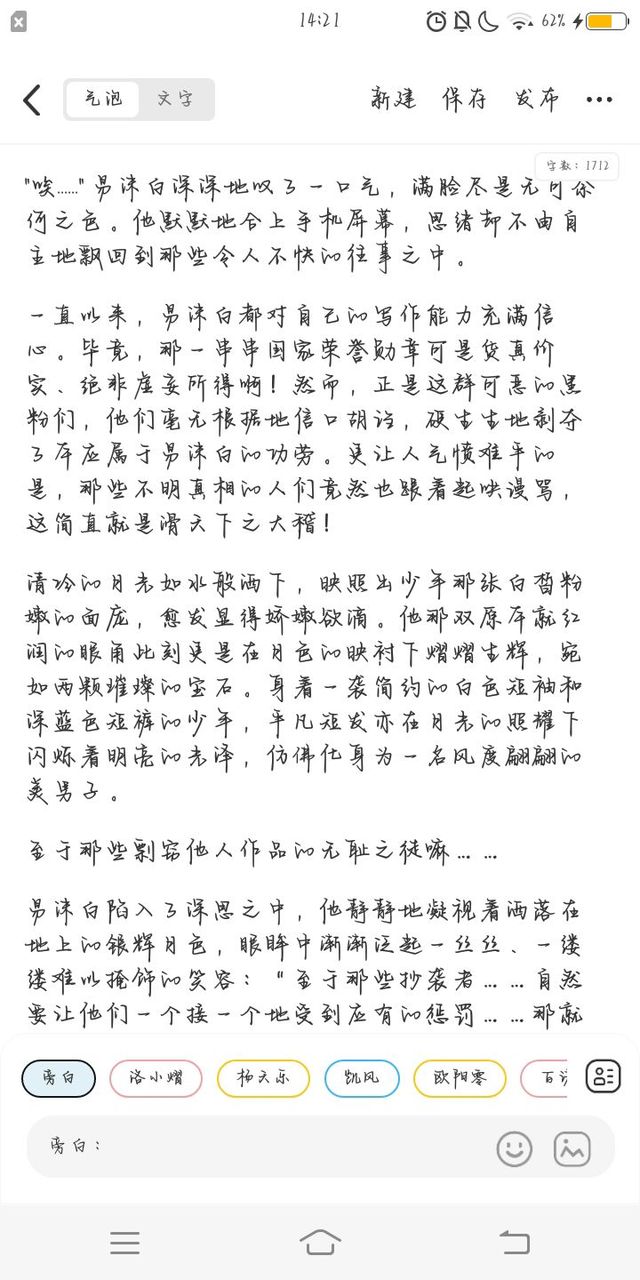 14:21
62%
气泡
文字
新建
保存
发布
字数：1712
"唉……"易沫白深深地叹了一口气，满脸尽是无可奈
何之色。他默默地合上手机屏幕，思绪却不由自
主地飘回到那些令人不快的往事之中。
一直以来，易沫白都对自己的写作能力充满信
心。毕竟，那一串串国家荣誉勋章可是货真价
实、绝非虚妄所得啊！然而，正是这群可恶的黑
粉们，他们毫无根据地信口胡诌，硬生生地剥夺
了本应属于易沫白的功劳。更让人气愤难平的
是，那些不明真相的人们竟然也跟着起哄谩骂，
这简直就是滑天下之大稽！
清冷的月光如水般洒下，映照出少年那张白皙粉
嫩的面庞，愈发显得娇嫩欲滴。他那双原本就红
润的眼角此刻更是在月色的映衬下熠熠生辉，宛
如两颗璀璨的宝石。身着一袭简约的白色短袖和
深蓝色短裤的少年，平凡短发亦在月光的照耀下
闪烁着明亮的光泽，仿佛化身为一名风度翩翩的
美男子。
至于那些剽窃他人作品的无耻之徒嘛……
易沫白陷入了深思之中，他静静地凝视着洒落在
地上的银辉月色，眼眸中渐渐泛起一丝丝、一缕
缕难以掩饰的笑容："至于那些抄袭者……自然
要让他们一个接一个地受到应有的惩罚……那就
旁白
洛小熠
杨天乐
凯风
欧阳零
百诺
旁白：